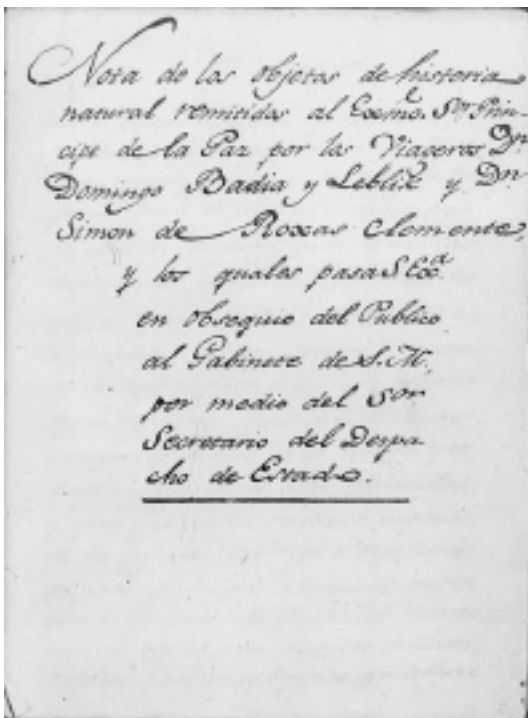 Nota de los objetos de historia
natural remitidos al Exmo. Sor. Prin-
cipe de la Paz por los Viageros Dn.
Domingo Badia y Leblik y Dn
Simon de Roxas Clemente,
y los quales pasa S. Exa.
en obsequio del Publico
al Gabinete de S. M.
por medio del Sor
Secretario del Despa
cho de Estado.